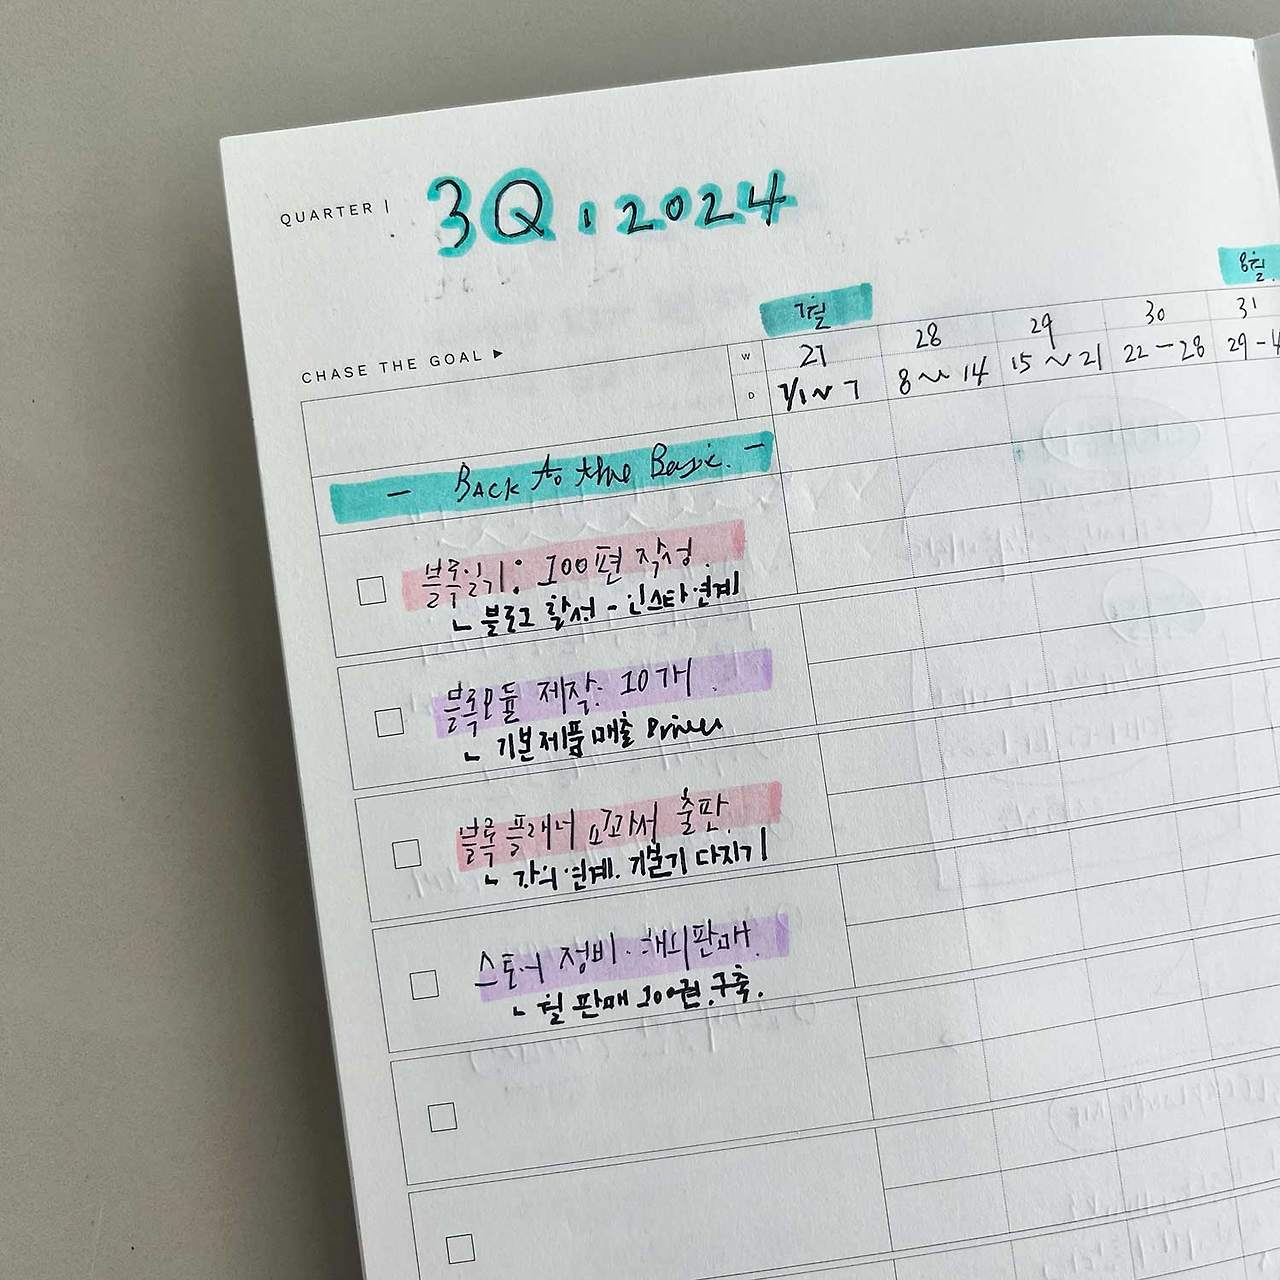 QUARTER | 3Q. 2024
CHASE THE GOAL ▶
7월 8월
W 27 28 29 30 31
D 7/1~7 8~14 15~21 22-28 29-4
- Back to the Basic. -
블루읽기: 100편 작성.
ㄴ 블로그 활성 - 인스타연계
블록모듈 제작: 10개.
ㄴ 기본제품 매출 Driver
블록플래너 교과서 출판.
ㄴ 강의연계. 기본기 다지기
스토어 정비. 해외판매.
ㄴ 월 판매 100권. 구축.